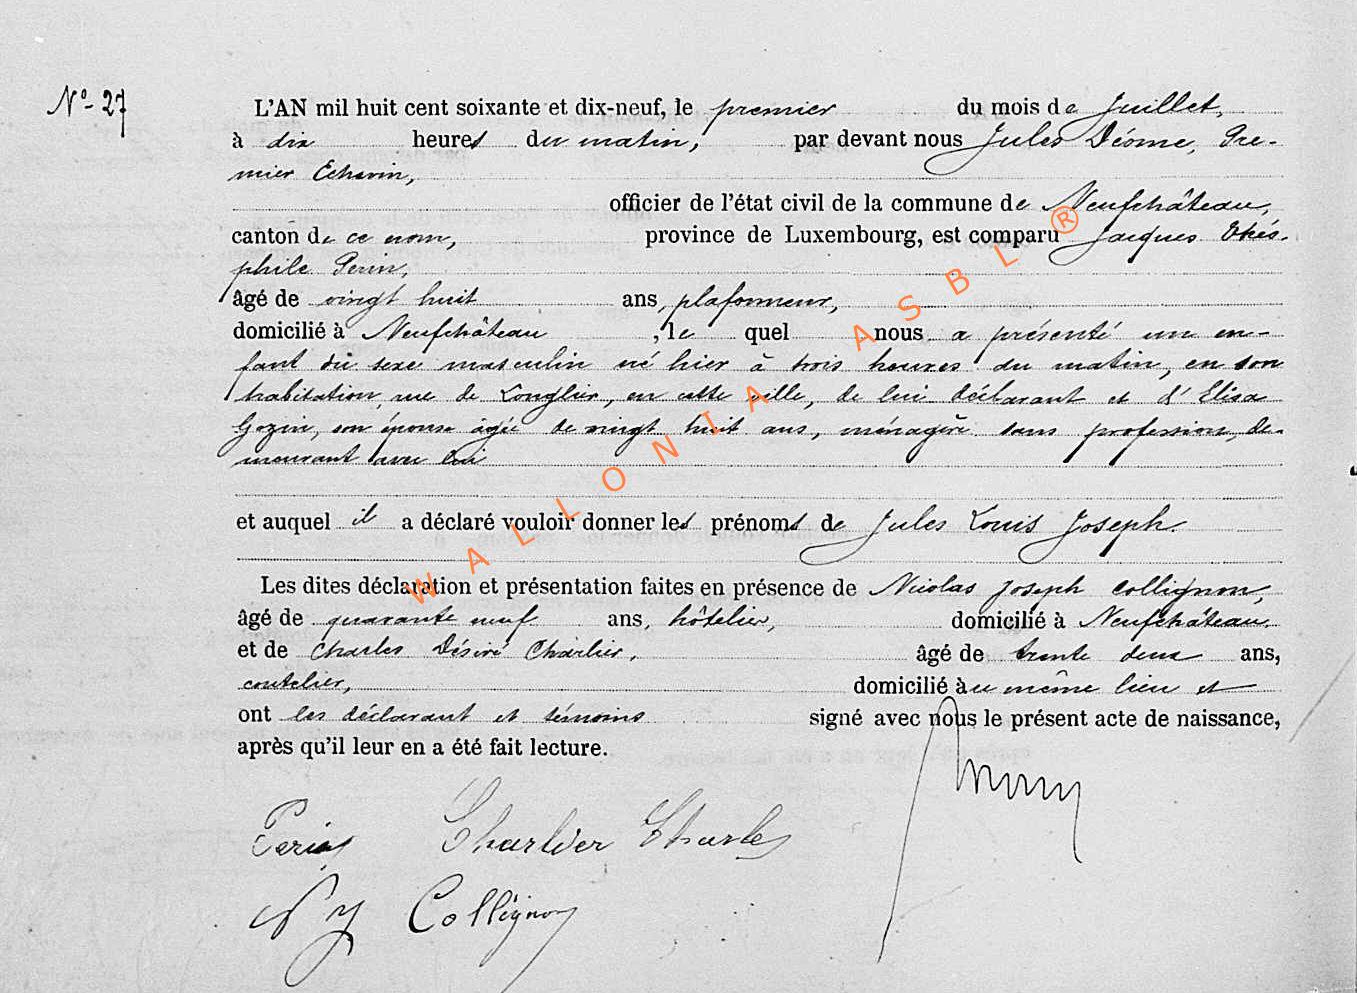 N° 27
L'AN mil huit cent soixante et dix-neuf, le premier du mois de Juillet,
à dix heures du matin, par devant nous Jules Déome, Pre-
mier Echevin,
officier de l'état civil de la commune de Neufchâteau,
canton de ce nom, province de Luxembourg, est comparu Jacques Théo-
phile Perin,
âgé de vingt huit ans, plafonneur,
domicilié à Neufchâteau, le quel nous a présenté un en-
fant du sexe masculin né hier à trois heures du matin, en son
habitation, rue de Longlier, en cette ville, de lui déclarant et d'Elisa
Gozin, son épouse âgée de vingt huit ans, ménagère sans profession, de-
meurant avec lui
et auquel il a déclaré vouloir donner les prénoms de Jules Louis Joseph.
Les dites déclaration et présentation faites en présence de Nicolas Joseph Collignon,
âgé de quarante neuf ans, hôtelier, domicilié à Neufchâteau,
et de Charles Désiré Charlier, âgé de trente deux ans,
coutelier, domicilié au même lieu et
ont les déclarant et témoins signé avec nous le présent acte de naissance,
après qu'il leur en a été fait lecture.
Perin Charlier Charles
N J Collignon
WALLONIA ASBL ®